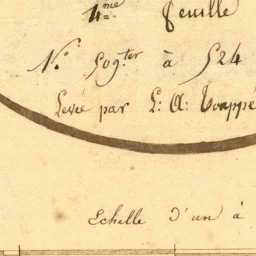 4me feuille
N.° 509ter à 524
Levée par L: A: Trappé
Echelle d'un à